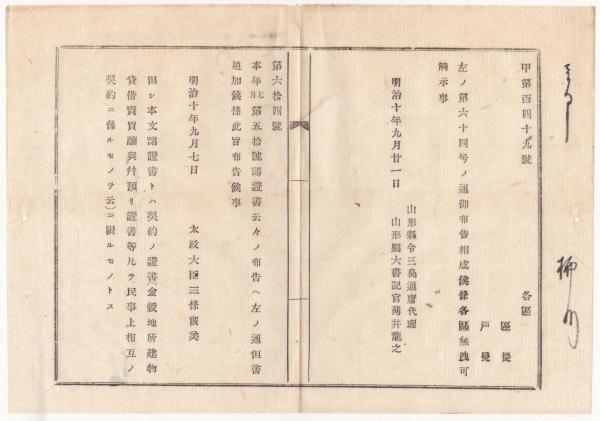 甲第百四十九號
各區
區長
戸長
左ノ第六十四号ノ通御布告相成候條各區無洩可
觸示事
明治十年九月廿一日
山形縣令三島通庸代理
山形縣大書記官薄井龍之
第六拾四號
本年七月第五拾號諸證書云々ノ布告ヘ左ノ通但書
追加候條此旨布告候事
明治十年九月七日
太政大臣三條實美
但シ本文諸證書トハ契約ノ證書(金穀地所建物
貸借賣買讓與幷預リ證書等凡ヲ民事上相互ノ
契約ニ係ルモノヲ云)ニ限ルモノトス
柳川